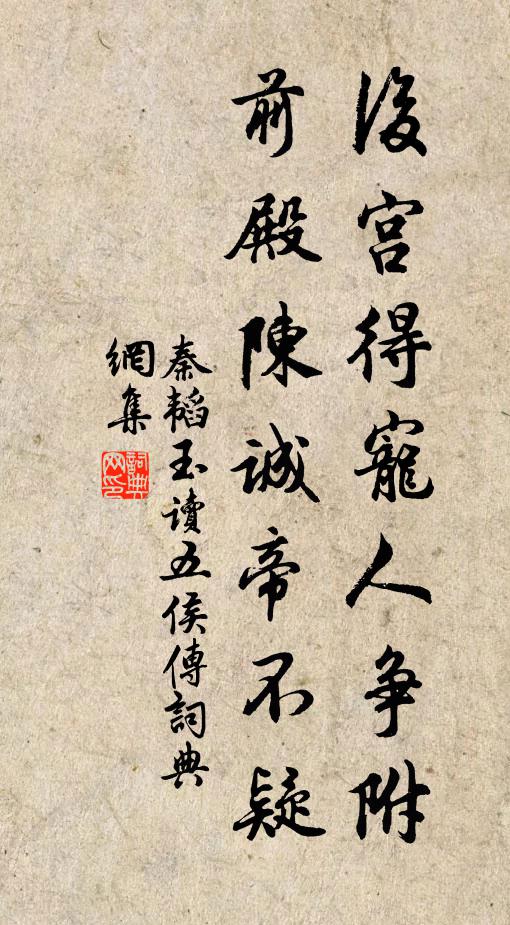 後宮得寵人争附
前殿陳誠帝不疑
秦韜玉讀五侯傳詞典
網集
詞典
网印